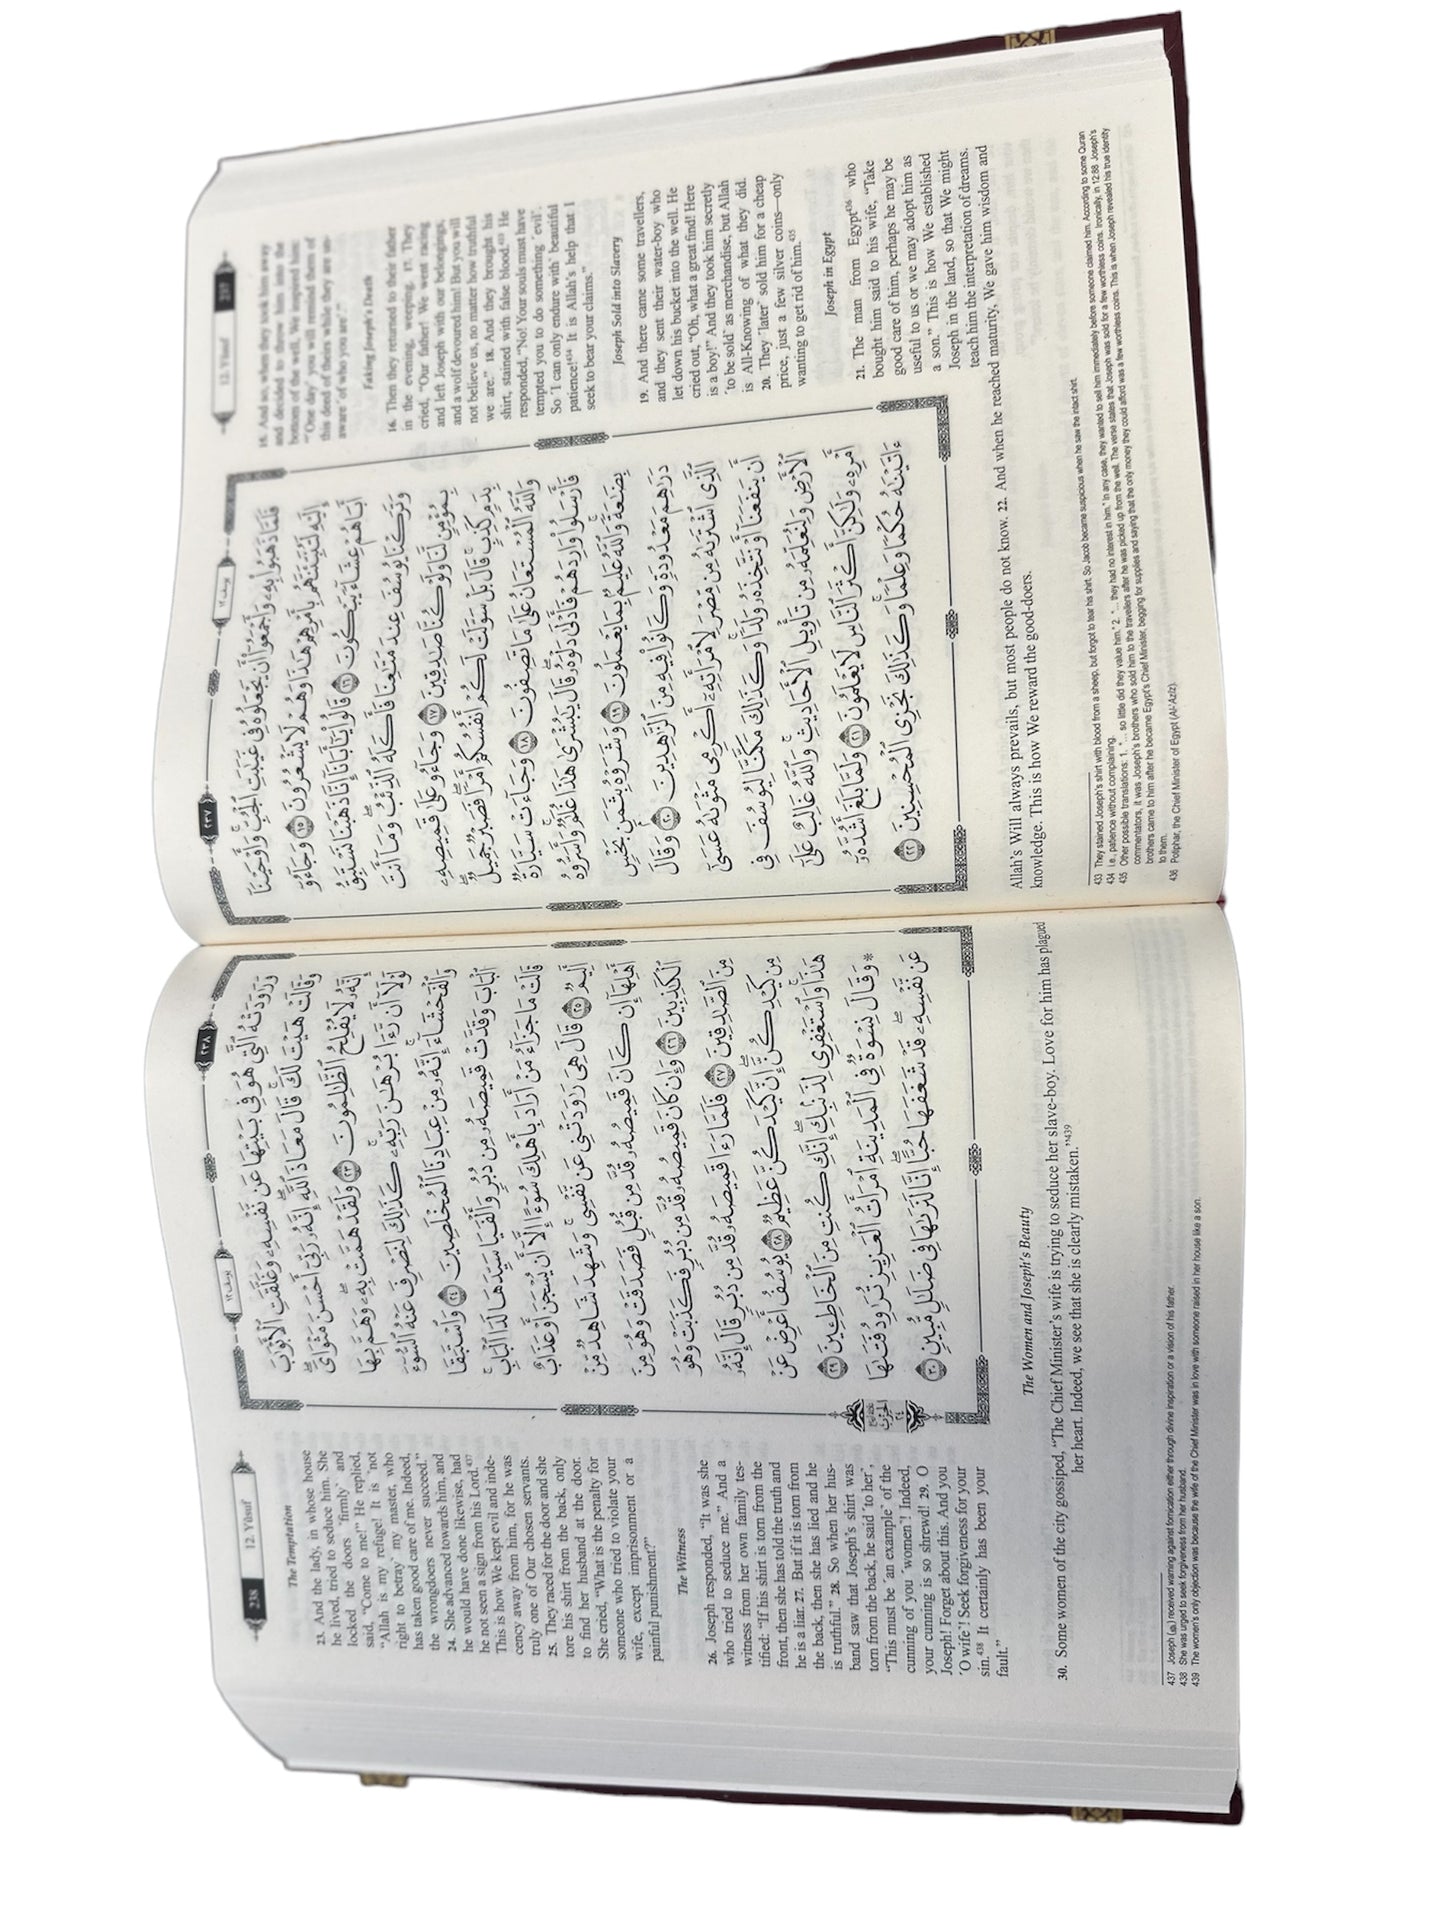 237
12. Yûsuf
يوسف ١٢
٢٣٧
15. And so, when they took him away
and decided to throw him into the
bottom of the well, We inspired him:
“˹One day˺ you will remind them of
this deed of theirs while they are un-
aware ˹of who you are˺.”
Faking Joseph's Death
16. Then they returned to their father
in the evening, weeping. 17. They
cried, “Our father! We went racing
and left Joseph with our belongings,
and a wolf devoured him! But you will
not believe us, no matter how truthful
we are.” 18. And they brought his
shirt, stained with false blood.433 He
responded, “No! Your souls must have
tempted you to do something ˹evil˺.
So ˹I can only endure with˺ beautiful
patience!434 It is Allah's help that I
seek to bear your claims.”
Joseph Sold into Slavery
19. And there came some travellers,
and they sent their water-boy who
let down his bucket into the well. He
cried out, “Oh, what a great find! Here
is a boy!” And they took him secretly
˹to be sold˺ as merchandise, but Allah
is All-Knowing of what they did.
20. They ˹later˺ sold him for a cheap
price, just a few silver coins—only
wanting to get rid of him.435
Joseph in Egypt
21. The man from Egypt436 who
bought him said to his wife, “Take
good care of him, perhaps he may be
useful to us or we may adopt him as
a son.” This is how We established
Joseph in the land, so that We might
teach him the interpretation of dreams.
فَلَمَّا ذَهَبُوا۟ بِهِۦ وَأَجْمَعُوٓا۟ أَن يَجْعَلُوهُ فِى غَيَـٰبَتِ ٱلْجُبِّ ۚ وَأَوْحَيْنَآ
إِلَيْهِ لَتُنَبِّئَنَّهُم بِأَمْرِهِمْ هَـٰذَا وَهُمْ لَا يَشْعُرُونَ ١٥ وَجَآءُوٓ
أَبَاهُمْ عِشَآءً يَبْكُونَ ١٦ قَالُوا۟ يَـٰٓأَبَانَآ إِنَّا ذَهَبْنَا نَسْتَبِقُ
وَتَرَكْنَا يُوسُفَ عِندَ مَتَـٰعِنَا فَأَكَلَهُ ٱلذِّئْبُ ۖ وَمَآ أَنتَ
بِمُؤْمِنٍ لَّنَا وَلَوْ كُنَّا صَـٰدِقِينَ ١٧ وَجَآءُو عَلَىٰ قَمِيصِهِۦ
بِدَمٍ كَذِبٍ ۚ قَالَ بَلْ سَوَّلَتْ لَكُمْ أَنفُسُكُمْ أَمْرًا ۖ فَصَبْرٌ جَمِيلٌ ۖ
وَٱللَّهُ ٱلْمُسْتَعَانُ عَلَىٰ مَا تَصِفُونَ ١٨ وَجَآءَتْ سَيَّارَةٌ
فَأَرْسَلُوا۟ وَارِدَهُمْ فَأَدْلَىٰ دَلْوَهُۥ ۖ قَالَ يَـٰبُشْرَىٰ هَـٰذَا غُلَـٰمٌ ۚ وَأَسَرُّوهُ
بِضَـٰعَةً ۚ وَٱللَّهُ عَلِيمٌۢ بِمَا يَعْمَلُونَ ١٩ وَشَرَوْهُ بِثَمَنٍۭ بَخْسٍ
دَرَٰهِمَ مَعْدُودَةٍ وَكَانُوا۟ فِيهِ مِنَ ٱلزَّٰهِدِينَ ٢٠ وَقَالَ
ٱلَّذِى ٱشْتَرَىٰهُ مِن مِّصْرَ لِٱمْرَأَتِهِۦٓ أَكْرِمِى مَثْوَىٰهُ عَسَىٰٓ
أَن يَنفَعَنَآ أَوْ نَتَّخِذَهُۥ وَلَدًا ۚ وَكَذَٰلِكَ مَكَّنَّا لِيُوسُفَ فِى
ٱلْأَرْضِ وَلِنُعَلِّمَهُۥ مِن تَأْوِيلِ ٱلْأَحَادِيثِ ۚ وَٱللَّهُ غَالِبٌ عَلَىٰٓ
أَمْرِهِۦ وَلَـٰكِنَّ أَكْثَرَ ٱلنَّاسِ لَا يَعْلَمُونَ ٢١ وَلَمَّا بَلَغَ أَشُدَّهُۥٓ
ءَاتَيْنَـٰهُ حُكْمًا وَعِلْمًا ۚ وَكَذَٰلِكَ نَجْزِى ٱلْمُحْسِنِينَ ٢٢
Allah's Will always prevails, but most people do not know. 22. And when he reached maturity, We gave him wisdom and
knowledge. This is how We reward the good-doers.
433 They stained Joseph's shirt with blood from a sheep, but forgot to tear his shirt. So Jacob became suspicious when he saw the intact shirt.
434 i.e., patience without complaining.
435 Other possible translations: 1. “... so little did they value him.” 2. “... they had no interest in him.” In any case, they wanted to sell him immediately before someone claimed him. According to some Quran
commentators, it was Joseph's brothers who sold him to the travellers after he was picked up from the well. The verse states that Joseph was sold for a few worthless coins. Ironically, in 12:88 Joseph's
brothers came to him after he became Egypt's Chief Minister, begging for supplies and saying that the only money they could afford was a few worthless coins. This is when Joseph revealed his true identity
to them.
436 Potiphar, the Chief Minister of Egypt (Al-'Azîz).
238
12. Yûsuf
يوسف ١٢
٢٣٨
The Temptation
23. And the lady, in whose house
he lived, tried to seduce him. She
locked the doors ˹firmly˺ and
said, “Come to me!” He replied,
“Allah is my refuge! It is ˹not
right to betray˺ my master, who
has taken good care of me. Indeed,
the wrongdoers never succeed.”
24. She advanced towards him, and
he would have done likewise, had
he not seen a sign from his Lord.437
This is how We kept evil and inde-
cency away from him, for he was
truly one of Our chosen servants.
25. They raced for the door and she
tore his shirt from the back, only
to find her husband at the door.
She cried, “What is the penalty for
someone who tried to violate your
wife, except imprisonment or a
painful punishment?”
The Witness
26. Joseph responded, “It was she
who tried to seduce me.” And a
witness from her own family tes-
tified: “If his shirt is torn from the
front, then she has told the truth and
he is a liar. 27. But if it is torn from
the back, then she has lied and he
is truthful.” 28. So when her hus-
band saw that Joseph's shirt was
torn from the back, he said ˹to her˺,
“This must be ˹an example˺ of the
cunning of you ˹women˺! Indeed,
your cunning is so shrewd! 29. O
Joseph! Forget about this. And you
˹O wife˺! Seek forgiveness for your
sin.438 It certainly has been your
fault.”
وَرَٰوَدَتْهُ ٱلَّتِى هُوَ فِى بَيْتِهَا عَن نَّفْسِهِۦ وَغَلَّقَتِ ٱلْأَبْوَٰبَ
وَقَالَتْ هَيْتَ لَكَ ۚ قَالَ مَعَاذَ ٱللَّهِ ۖ إِنَّهُۥ رَبِّىٓ أَحْسَنَ مَثْوَاىَ ۖ
إِنَّهُۥ لَا يُفْلِحُ ٱلظَّـٰلِمُونَ ٢٣ وَلَقَدْ هَمَّتْ بِهِۦ ۖ وَهَمَّ بِهَا
لَوْلَآ أَن رَّءَا بُرْهَـٰنَ رَبِّهِۦ ۚ كَذَٰلِكَ لِنَصْرِفَ عَنْهُ ٱلسُّوٓءَ
وَٱلْفَحْشَآءَ ۚ إِنَّهُۥ مِنْ عِبَادِنَا ٱلْمُخْلَصِينَ ٢٤ وَٱسْتَبَقَا
ٱلْبَابَ وَقَدَّتْ قَمِيصَهُۥ مِن دُبُرٍ وَأَلْفَيَا سَيِّدَهَا لَدَا ٱلْبَابِ ۚ
قَالَتْ مَا جَزَآءُ مَنْ أَرَادَ بِأَهْلِكَ سُوٓءًا إِلَّآ أَن يُسْجَنَ أَوْ عَذَابٌ
أَلِيمٌ ٢٥ قَالَ هِىَ رَٰوَدَتْنِى عَن نَّفْسِى ۚ وَشَهِدَ شَاهِدٌ مِّنْ
أَهْلِهَآ إِن كَانَ قَمِيصُهُۥ قُدَّ مِن قُبُلٍ فَصَدَقَتْ وَهُوَ مِنَ
ٱلْكَـٰذِبِينَ ٢٦ وَإِن كَانَ قَمِيصُهُۥ قُدَّ مِن دُبُرٍ فَكَذَبَتْ وَهُوَ
مِنَ ٱلصَّـٰدِقِينَ ٢٧ فَلَمَّا رَءَا قَمِيصَهُۥ قُدَّ مِن دُبُرٍ قَالَ إِنَّهُۥ
مِن كَيْدِكُنَّ ۖ إِنَّ كَيْدَكُنَّ عَظِيمٌ ٢٨ يُوسُفُ أَعْرِضْ عَنْ
هَـٰذَا ۚ وَٱسْتَغْفِرِى لِذَنۢبِكِ ۖ إِنَّكِ كُنتِ مِنَ ٱلْخَاطِـِٔينَ ٢٩
* وَقَالَ نِسْوَةٌ فِى ٱلْمَدِينَةِ ٱمْرَأَتُ ٱلْعَزِيزِ تُرَٰوِدُ فَتَىٰهَا
عَن نَّفْسِهِۦ ۖ قَدْ شَغَفَهَا حُبًّا ۖ إِنَّا لَنَرَىٰهَا فِى ضَلَـٰلٍ مُّبِينٍ ٣٠
الحزب
٢٤
The Women and Joseph's Beauty
30. Some women of the city gossiped, “The Chief Minister's wife is trying to seduce her slave-boy. Love for him has plagued
her heart. Indeed, we see that she is clearly mistaken.”439
437 Joseph (ﷺ) received warning against fornication either through divine inspiration or a vision of his father.
438 She was urged to seek forgiveness from her husband.
439 The women's only objection was because the wife of the Chief Minister was in love with someone raised in her house like a son.